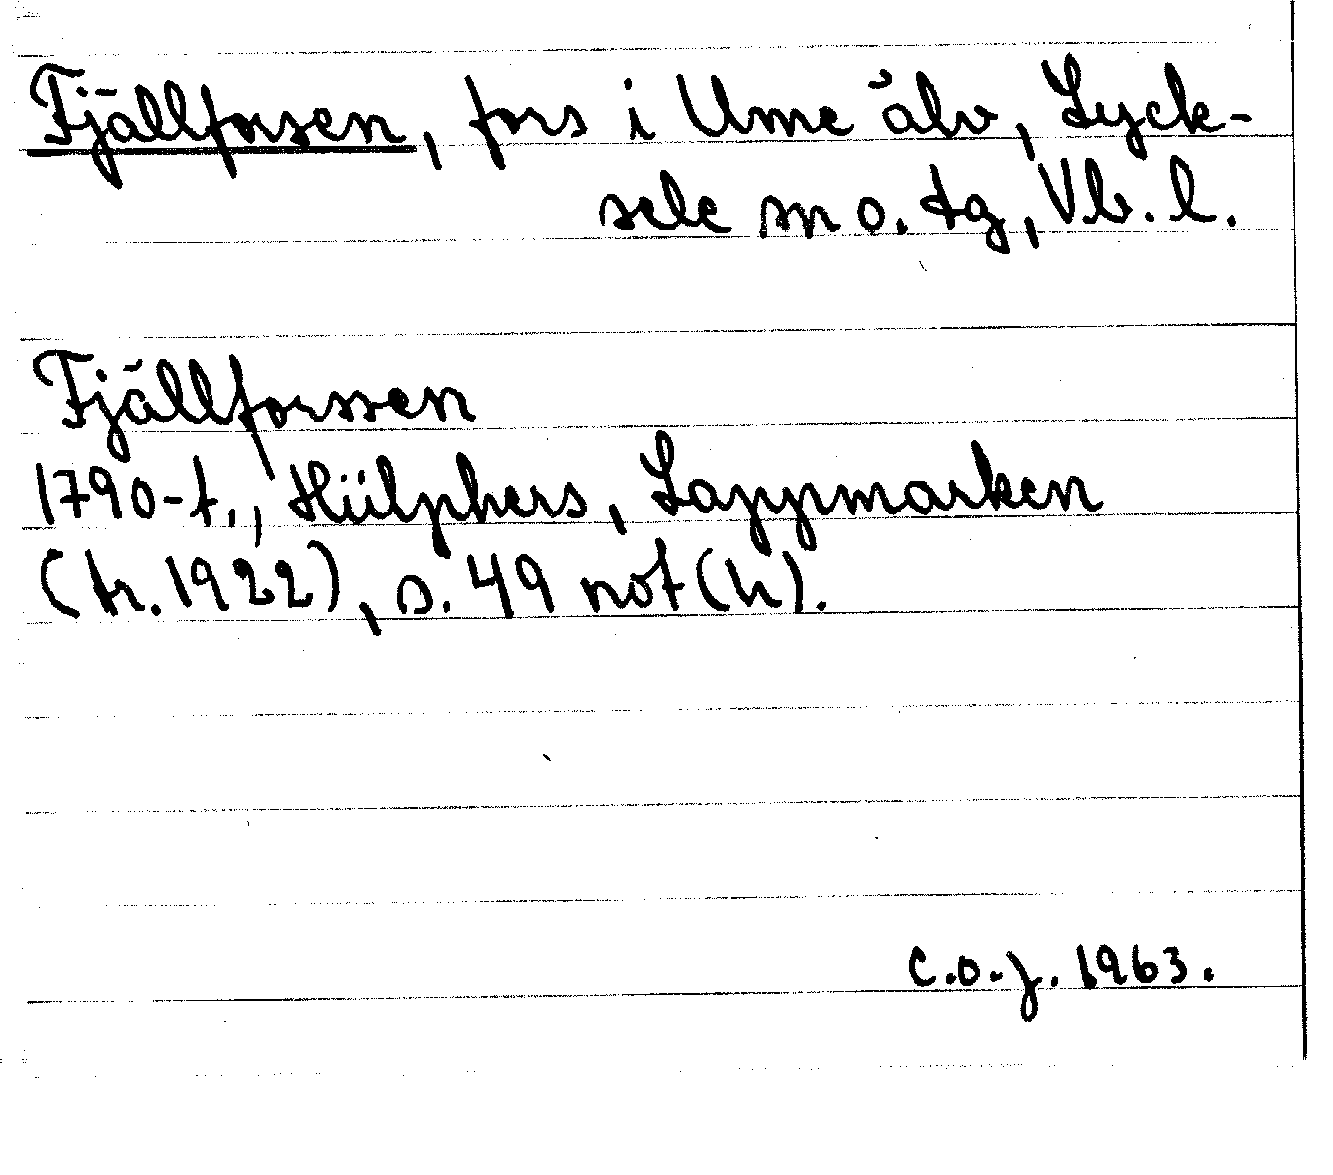 Fjällforsen, fors i Ume älv, Lyck-
sele sn o. tg, Vb. l.
Fjällforssen
1790-t., Hülphers, Lappmarken
(tr. 1922), s. 49 not (h).
C.O.J. 1963.